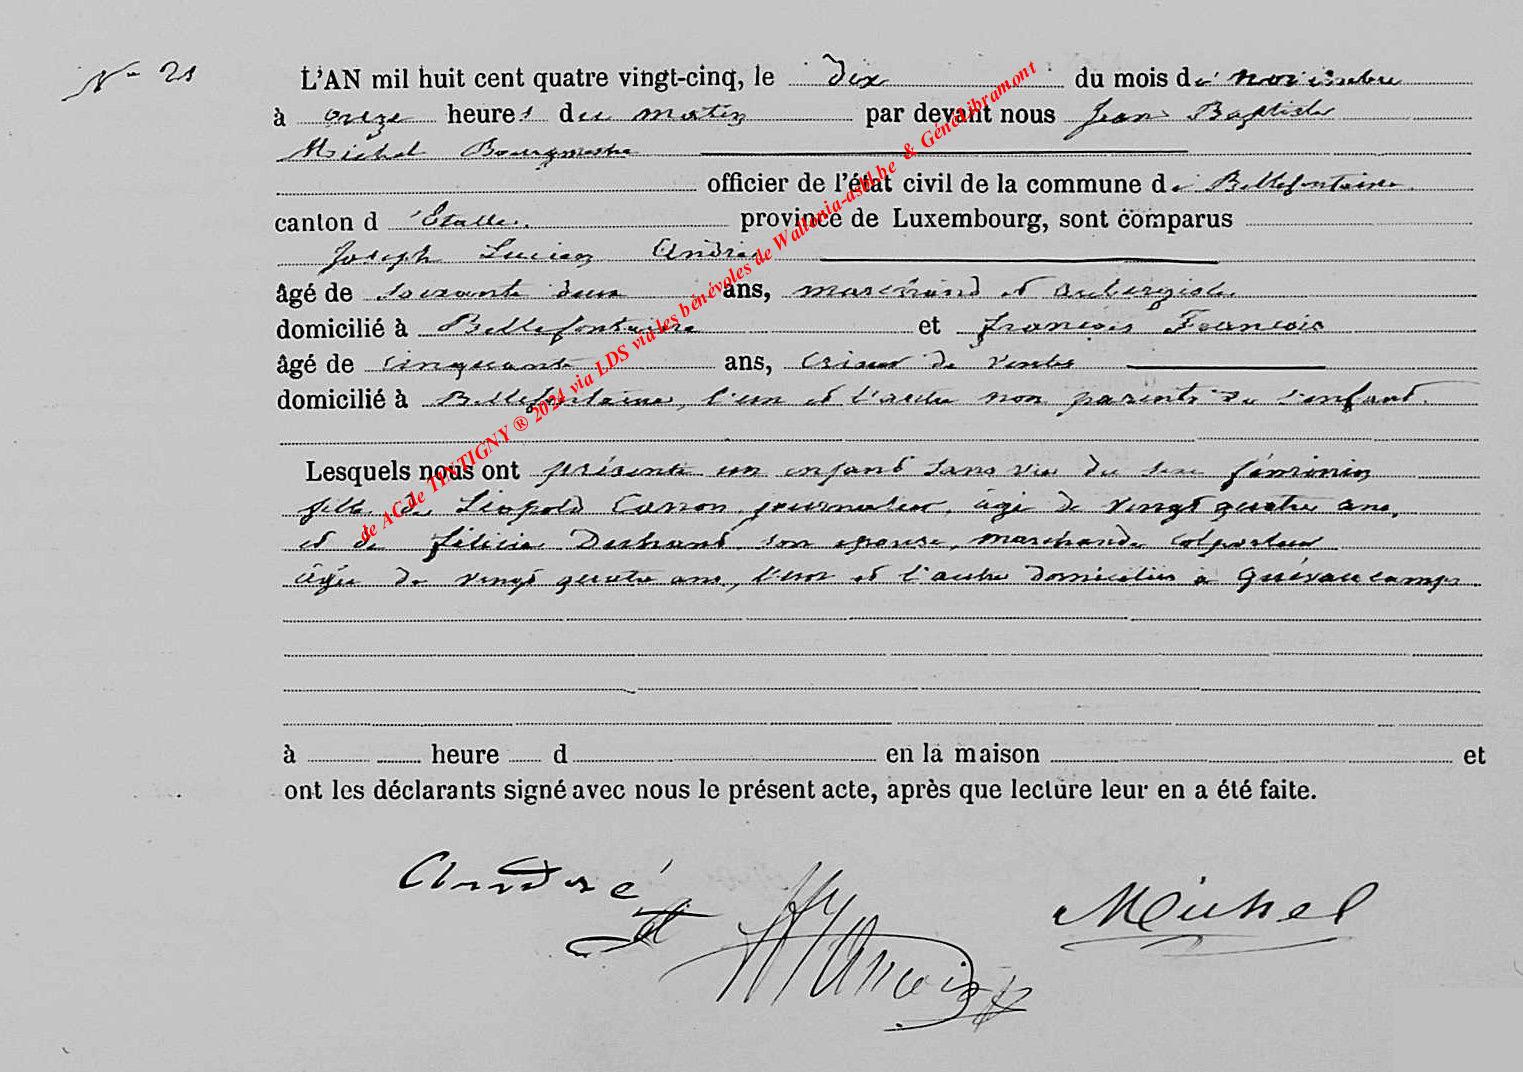 N° 21
L'AN mil huit cent quatre vingt-cinq, le dix du mois de novembre
à onze heures du matin par devant nous Jean Baptiste
Michel Bourgmestre
officier de l'état civil de la commune de Bellefontaine
canton d'Etalle. province de Luxembourg, sont comparus
Joseph Lucien André
âgé de soixante deux ans, marchand et aubergiste
domicilié à Bellefontaine et françois François
âgé de cinquante ans, crieur de ventes
domicilié à Bellefontaine, l'un et l'autre non parents de l'enfant.
Lesquels nous ont présenté un enfant sans vie du sexe féminin
fille de Léopold Carron journalier, âgé de vingt quatre ans,
et de félicie Duhant son épouse, marchande colporteur
âgée de vingt quatre ans, l'un et l'autre domiciliés à Quévaucamps
à heure d en la maison et
ont les déclarants signé avec nous le présent acte, après que lecture leur en a été faite.
André
François
Michel
de AC de TINTIGNY ® 2024 via LDS via les bénévoles de Wallonia-asbl.be & Généalibramont